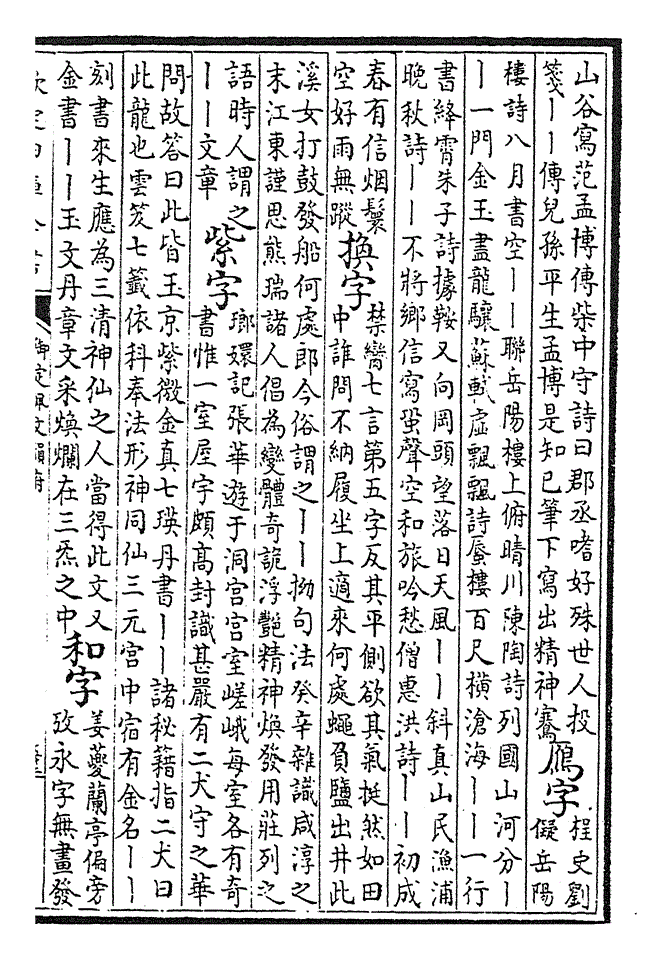 山谷寫范孟博傳柴中守詩曰郡丞嗜好殊世人投
箋丨丨傳兒孫平生孟博是知已筆下寫出精神騫
鴈字
桯史劉
儗岳陽
樓詩八月書空丨丨聯岳陽樓上俯晴川陳陶詩列國山河分丨
丨一門金玉盡龍驤蘇軾虛飄飄詩蜃樓百尺橫滄海丨丨一行
書絳霄朱子詩據鞍又向岡頭望落日天風丨丨斜真山民漁浦
晚秋詩丨丨不將鄉信寫蛩聲空和旅吟愁僧惠洪詩丨丨初成
春有信烟鬟
空好雨無蹤
換字
禁臠七言第五字反其平側欲其氣挺然如田
中誰問不納履坐上適來何處蠅負鹽出井此
溪女打鼓發船何處郎今俗謂之丨丨拗句法癸辛雜識咸淳之
末江東謹思熊瑞諸人倡為變體奇詭浮艷精神煥發用莊列之
語時人謂之
丨丨文章
紫字
瑯嬛記張華遊于洞宮宮室嵯峨每室各有奇
書惟一室屋宇頗高封識甚嚴有二犬守之華
問故答曰此皆玉京紫微金真七瑛丹書丨丨諸秘籍指二犬曰
此龍也雲笈七籤依科奉法形神同仙三元宮中宿有金名丨丨
刻書來生應為三清神仙之人當得此文又
金書丨丨玉文丹章文采煥爛在三炁之中
和字
姜夔蘭亭偏旁
攷永字無畫發
欽定四庫全書
御定佩文韻府